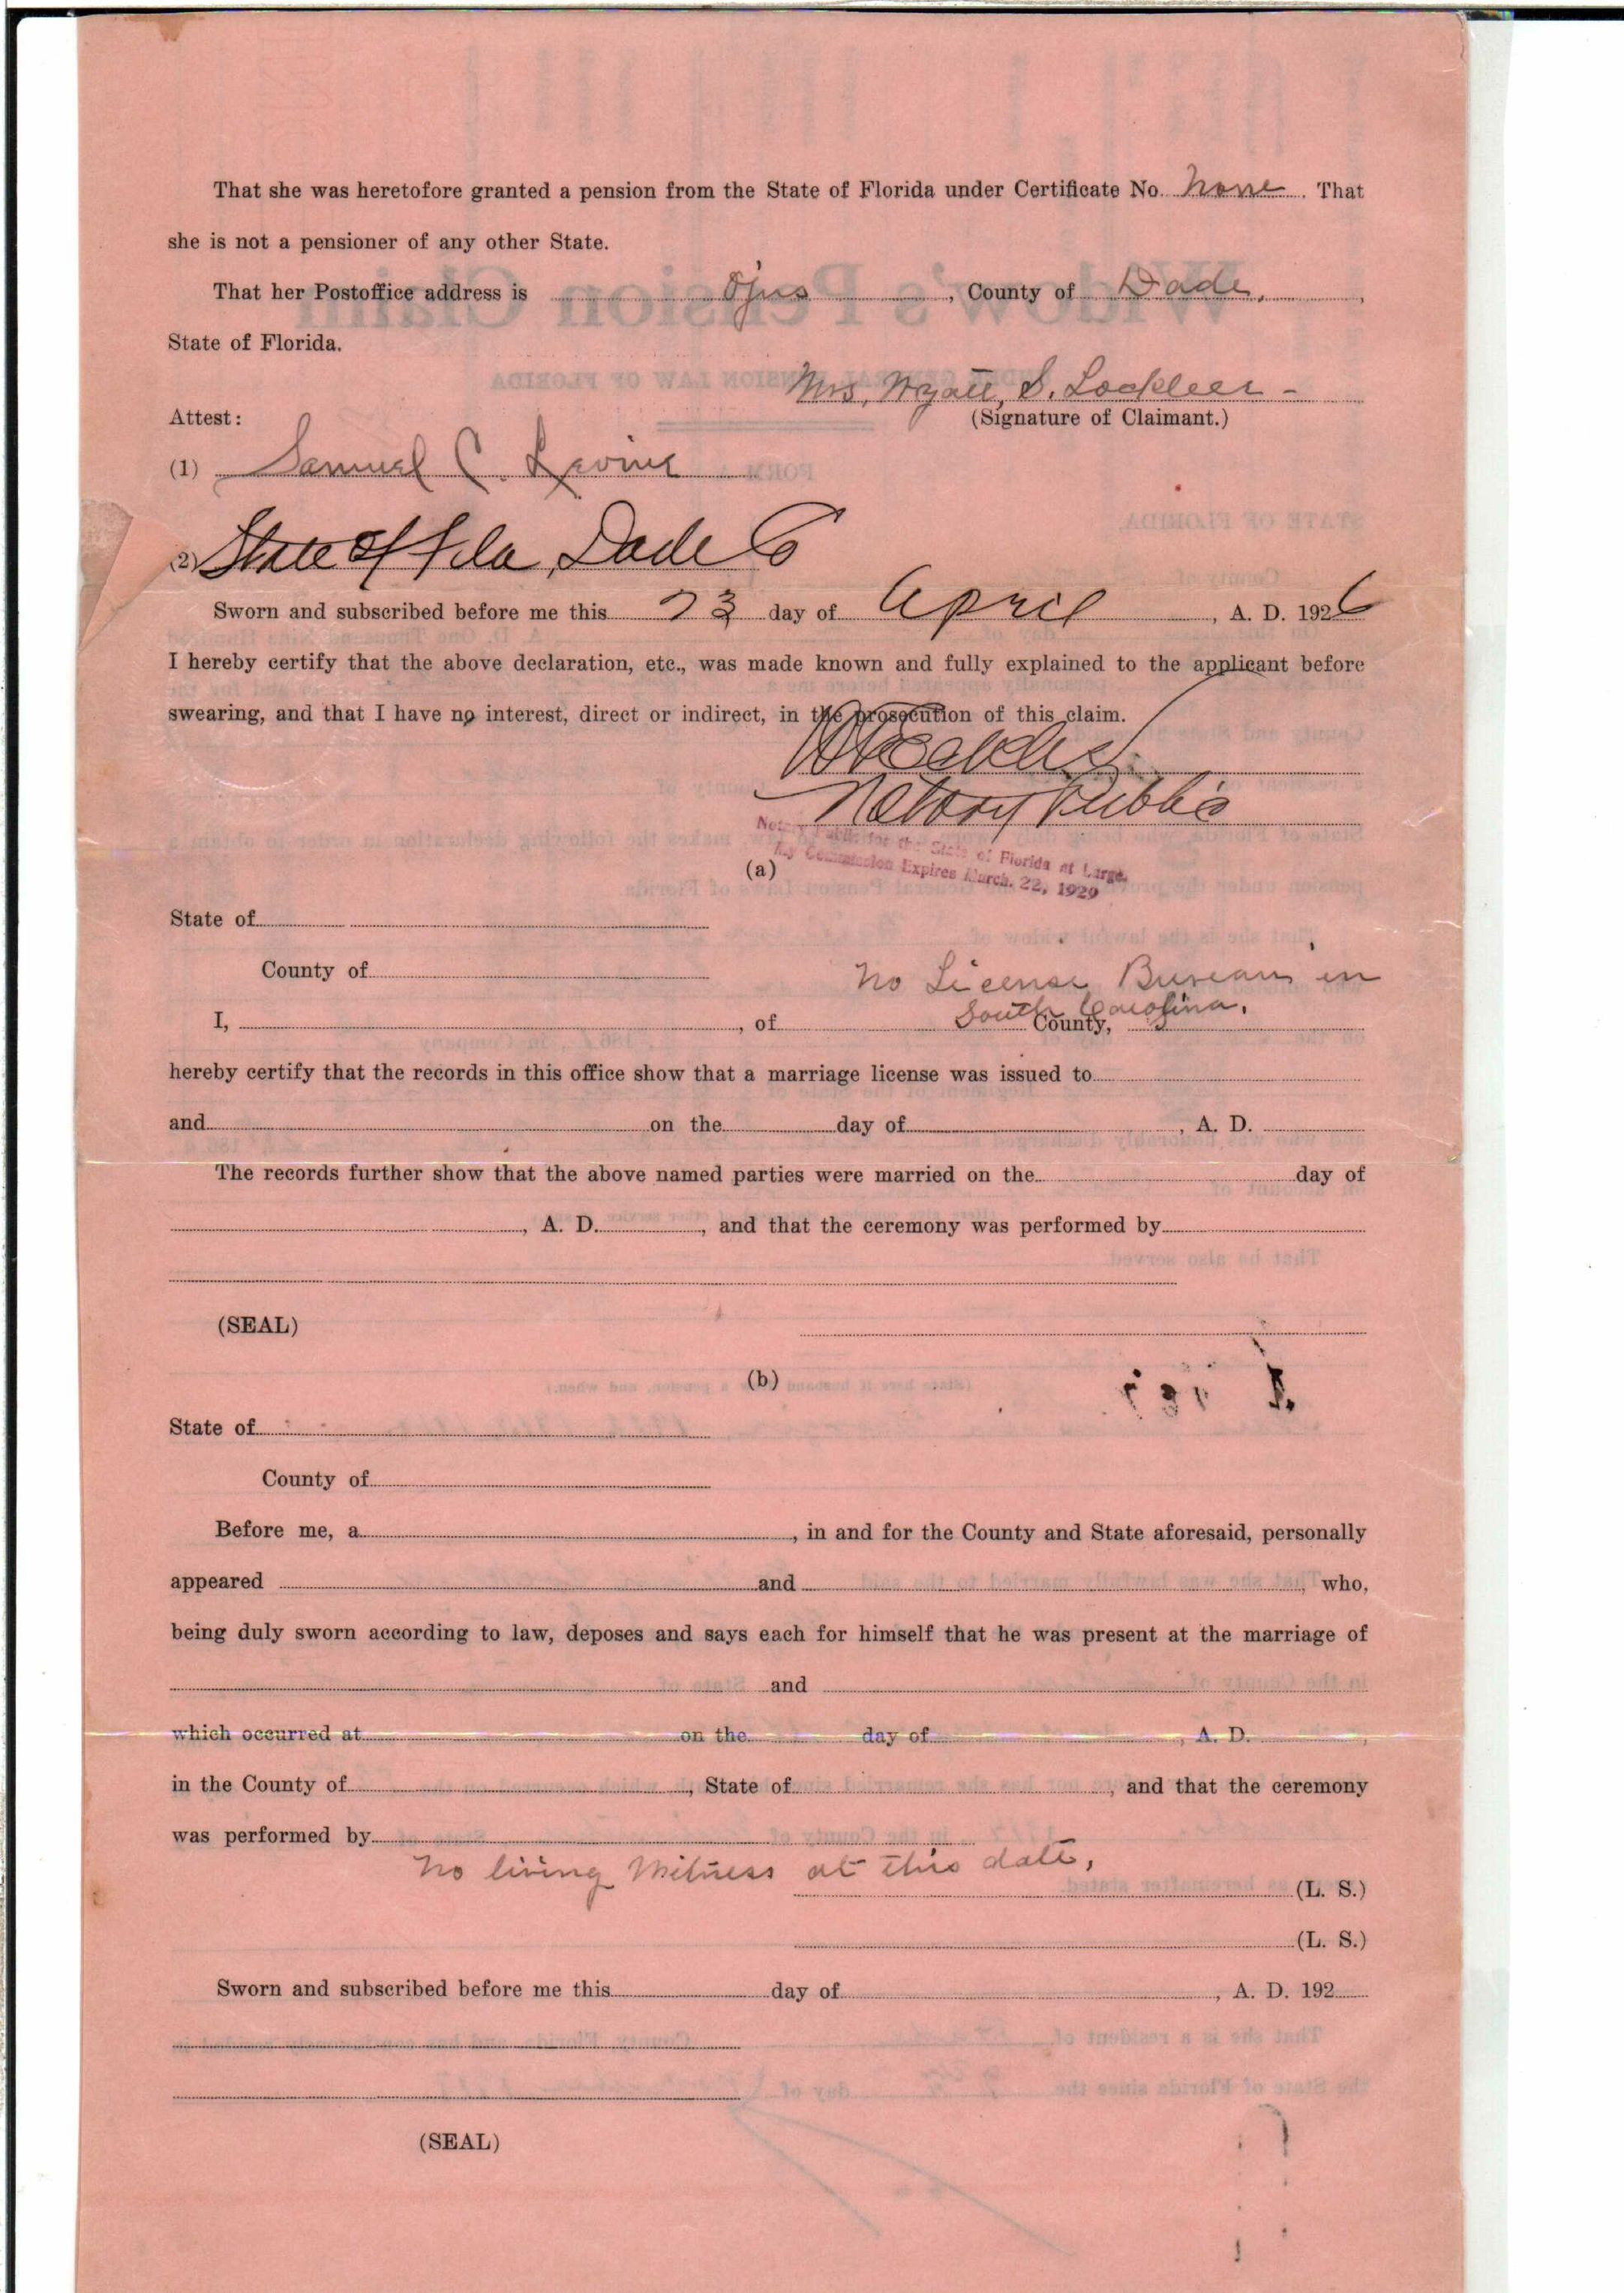 That she was heretofore granted a pension from the State of Florida under Certificate No. None. That
she is not a pensioner of any other State.
That her Postoffice address is Ojus, County of Dade,
State of Florida.
Mrs. Wyatt S. Lockleer -
Attest:
(Signature of Claimant.)
(1) Samuel C. Levine
(2) State of Fla, Dade Co
Sworn and subscribed before me this 23 day of April, A. D. 1926
I hereby certify that the above declaration, etc., was made known and fully explained to the applicant before
swearing, and that I have no interest, direct or indirect, in the prosecution of this claim.
Notary Public
Notary Public for the State of Florida at Large.
My Commission Expires March. 22, 1929
(a)
State of
County of
No License Bureau in
South Carolina.
I, , of County,
hereby certify that the records in this office show that a marriage license was issued to
and on the day of , A. D.
The records further show that the above named parties were married on the day of
, A. D. , and that the ceremony was performed by
(SEAL)
(b)
State of
County of
Before me, a , in and for the County and State aforesaid, personally
appeared and , who,
being duly sworn according to law, deposes and says each for himself that he was present at the marriage of
and
which occurred at on the day of , A. D. ,
in the County of , State of , and that the ceremony
was performed by
No living Witness at this date,
(L. S.)
(L. S.)
Sworn and subscribed before me this day of , A. D. 192
(SEAL)